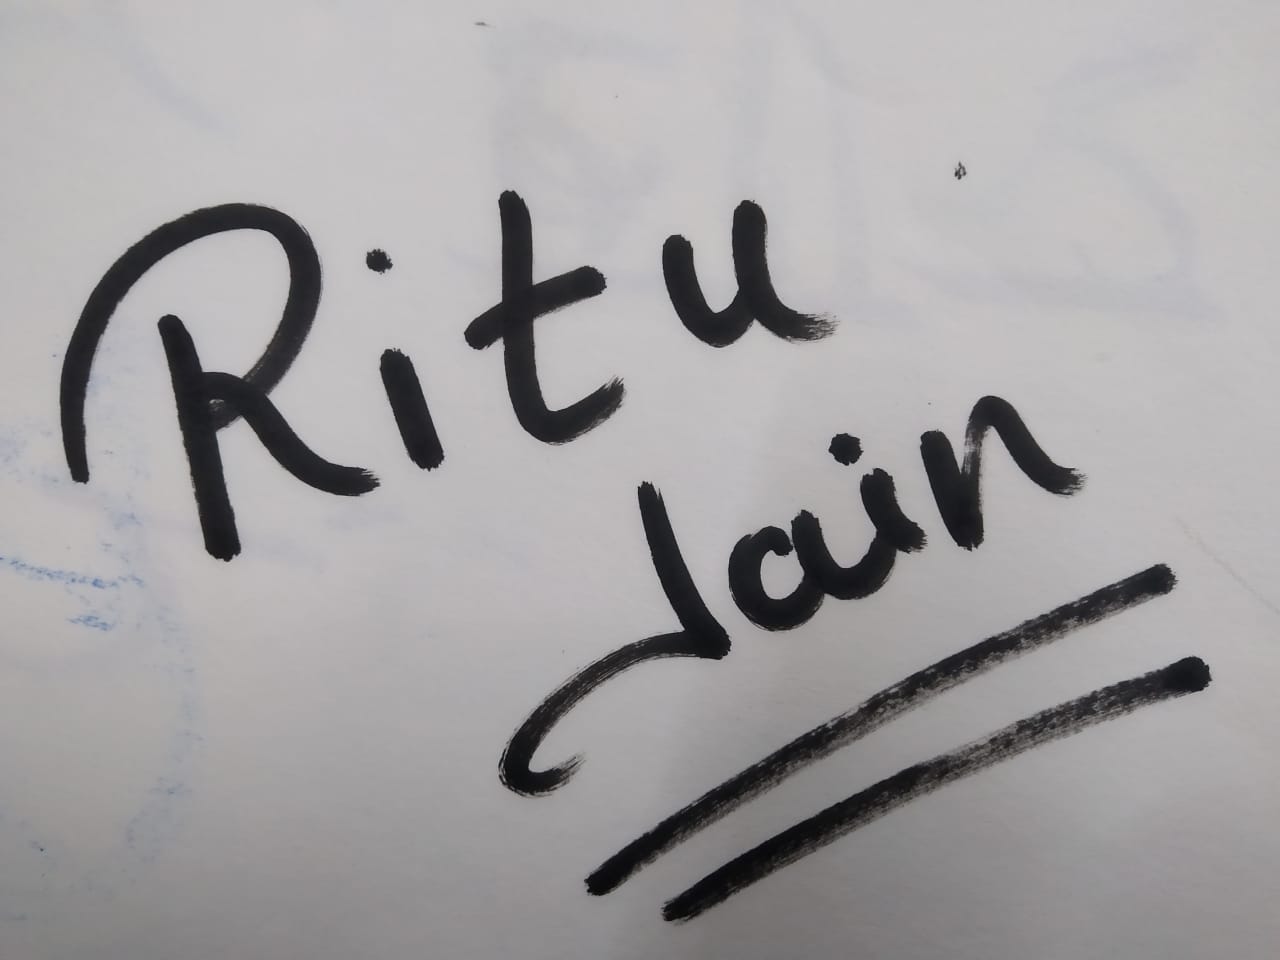 Ritu
Jain